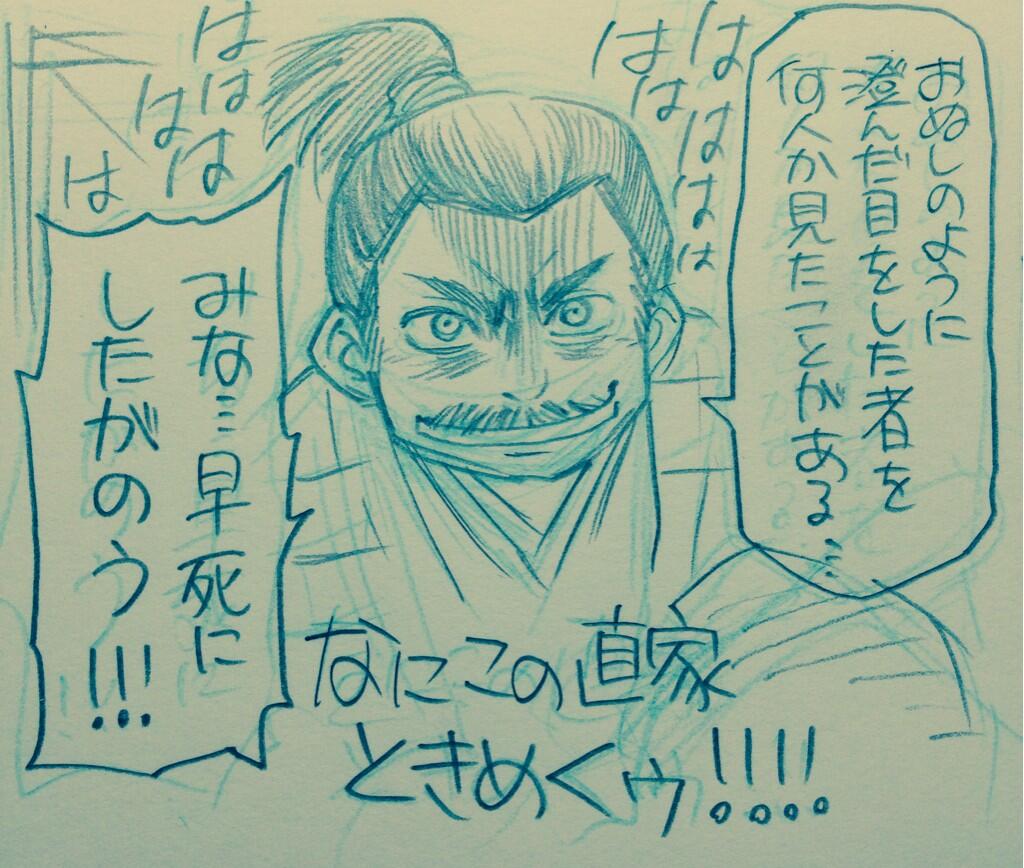 おぬしのように
澄んだ目をした者を
何人か見たことがある…
はははははは
はは
ははは
ははは
は
みな…早死に
したがのう!!!
なにこの直家
ときめくゥ!!!!